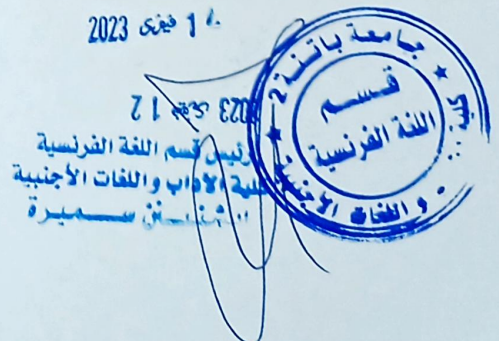 فيفري 2023
12 فيفري 2023
رئيس قسم اللغة الفرنسية
كلية الآداب واللغات الأجنبية
سميرة
جامعة باتنة 2
قسم
اللغة الفرنسية
كلية
واللغات الأجنبية